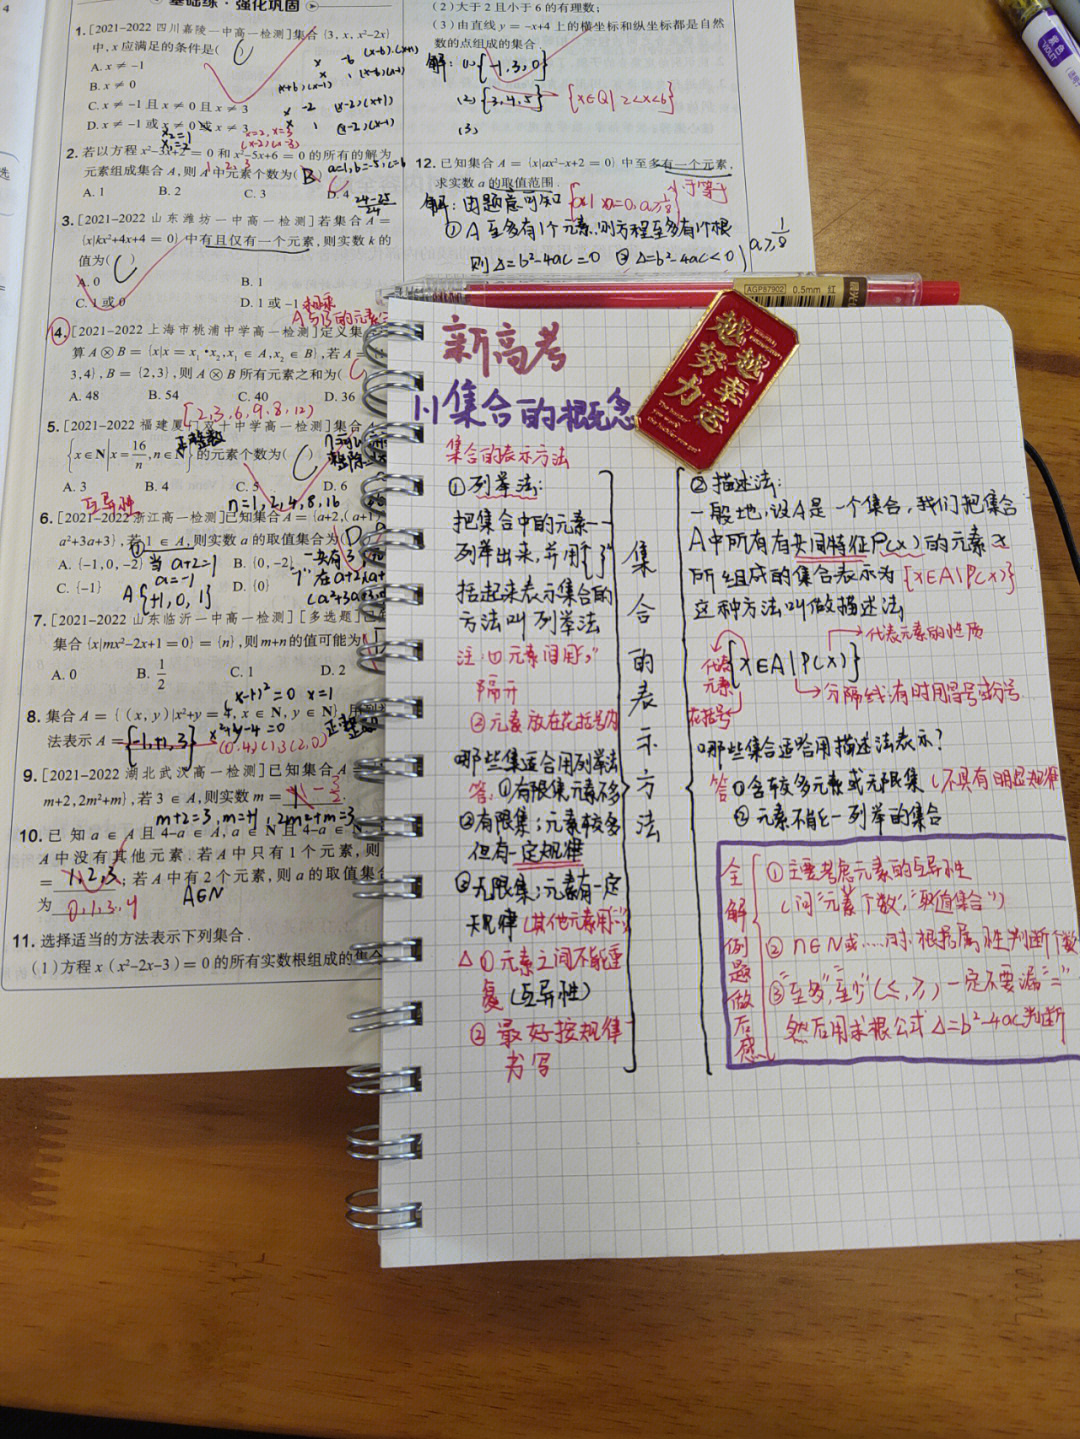 基础练·强化巩固
1.[2021-2022四川嘉陵一中高一检测]集合{3, x, x²-2x}
中,x应满足的条件是( C
A. x ≠ -1
B. x ≠ 0
C. x ≠ -1 且 x ≠ 0 且 x ≠ 3
D. x ≠ -1 或 x ≠ 0 或 x ≠ 3
2. 若以方程 x²-3x+2 = 0 和 x²-5x+6 = 0 的所有的解为
元素组成集合A,则A中元素个数为( B
A. 1 B. 2 C. 3 D. 4
3. [2021-2022 山东潍坊一中高一检测]若集合A=
{x|kx²+4x+4 = 0}中有且仅有一个元素,则实数k的
值为( C )
A. 0 B. 1
C. 1 或 0 D. 1 或 -1
4. [2021-2022 上海市桃浦中学高一检测]定义集
算 A⊗B = {x|x = x₁·x₂, x₁ ∈ A, x₂ ∈ B},若A=
3,4},B = {2,3},则A⊗B所有元素之和为(
A. 48 B. 54 C. 40 D. 36
{2,3,6,9,8,12}
5. [2021-2022 福建厦门双十中学高一检测]集合A
{x∈N|x=16/n, n∈N}的元素个数为( C
正整数
A. 3 B. 4 C. 5 D. 6
互异性
n=1,2,4,8,16
6. [2021-2022浙江高一检测]已知集合A={a+2,(a+1)
a²+3a+3},若1∈A,则实数a的取值集合为( D
A. {-1,0,-2} 当 a+2=1 B. {0,-2}
a=-1
C. {-1} D. {0}
A{+1,0,1}
7. [2021-2022 山东临沂一中高一检测][多选题]已
集合{x|mx²-2x+1=0}={n},则m+n的值可能为
A. 0 B. 1/2 C. 1 D. 2
(x-1)²=0 x=1
8. 集合A={(x,y)|x²+y=4, x∈N, y∈N},用列
法表示A={-1,+1,3}
x²+y-4=0
(0,4)(1,3)(2,0)
9. [2021-2022 湖北武汉高一检测]已知集合A
m+2,2m²+m},若3∈A,则实数m=
m+2=3, m=1, 2m²+m=3
10. 已知a∈A且4-a∈A,a∈N且4-a∈N
A中没有其他元素.若A中只有1个元素,则
= 1,2,3;若A中有2个元素,则a的取值集合
为 0,1,3,4 A∈N
11. 选择适当的方法表示下列集合.
(1)方程x(x²-2x-3)=0的所有实数根组成的集合
(2)大于2且小于6的有理数;
(3)由直线y=-x+4上的横坐标和纵坐标都是自然
数的点组成的集合.
解:(1){-1,3,0}
(2){3,4,5} {x∈Q|2<x<6}
(3)
12. 已知集合A={x|ax²-x+2=0}中至多有一个元素,
求实数a的取值范围.
解:由题意可知 {a|a=0,a≥1/8} 等于
①A至多有1个元素,则方程至多有1个根
则△=b²-4ac=0 ②△=b²-4ac<0 a≥1/8
AGP87902 0.5mm 红
越努力
越幸运
紫色
VIOLET
新高考
1.1集合的概念
集合的表示方法
①列举法:
把集合中的元素一一
列举出来,并用{ }
括起来表示集合的
方法叫列举法
注:①元素间用","
隔开
②元素放在花括号内
哪些集适合用列举法
答:①有限集元素不多
②有限集;元素较多
但有一定规律
③无限集;元素有一定
规律(其他元素用…)
△①元素之间不能重
复(互异性)
②最好按规律
书写
集合的表示方法
②描述法:
一般地,设A是一个集合,我们把集合
A中所有有共同特征P(x)的元素x
所组成的集合表示为{x∈A|P(x)}
这种方法叫做描述法
代表元素的性质
代表元素 {x∈A|P(x)}
分隔线:有时用冒号或分号
花括号
哪些集合适合用描述法表示?
答①含较多元素或无限集(不具有明显规律
②元素不能一一列举的集合
全解例题做后感
①主要考虑元素的互异性
(问"元素个数","取值集合")
②n∈N或……时,根据属性判断个数
③"至多","至少"(≤,≥)一定不要漏"="
然后用求根公式△=b²-4ac判断